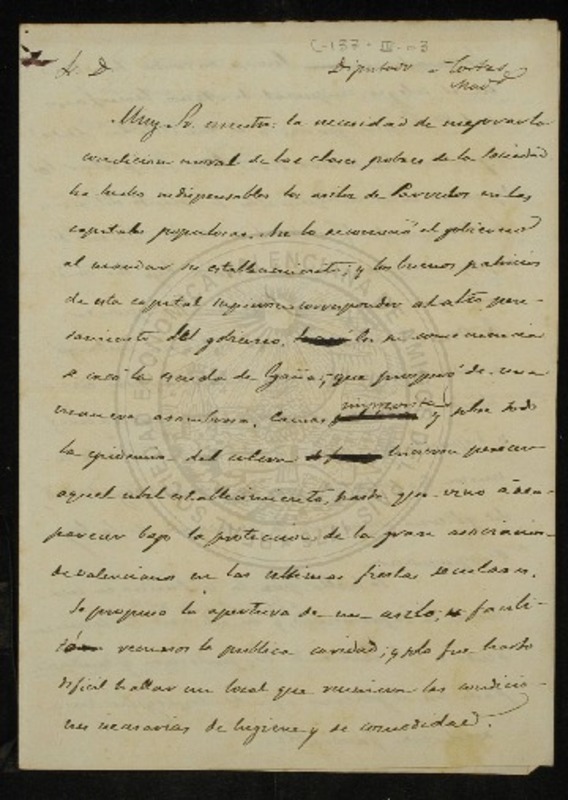 C-137-IV-03
Sr. D. Diputado a Cortes
Mad.
Muy Sr. nuestro: la necesidad de mejorar la
condicion moral de las clases pobres de la Sociedad
ha hecho indispensables los asilos de Parvulos en las
capitales populosas. Asi lo reconoció el gobierno
al mandar su establecimiento; y los buenos patricios
de esta capital supieron corresponder al alto pen-
samiento del gobierno. en consecuencia
se creó la escuela de; que prosperó de una
manera asombrosa. Causas imprevistas y sobre todo
la epidemia del colera hicieron perecer
aquel util establecimiento, hasta que vino á rea-
parecer bajo la proteccion de la grande asociacion
de valencianos en las ultimas fiestas seculares.
Se propuso la apertura de un asilo; facili-
tó recursos la publica caridad; y solo fue harto
dificil hallar un local que reuniera las condicio-
nes necesarias de higiene y de comodidad.